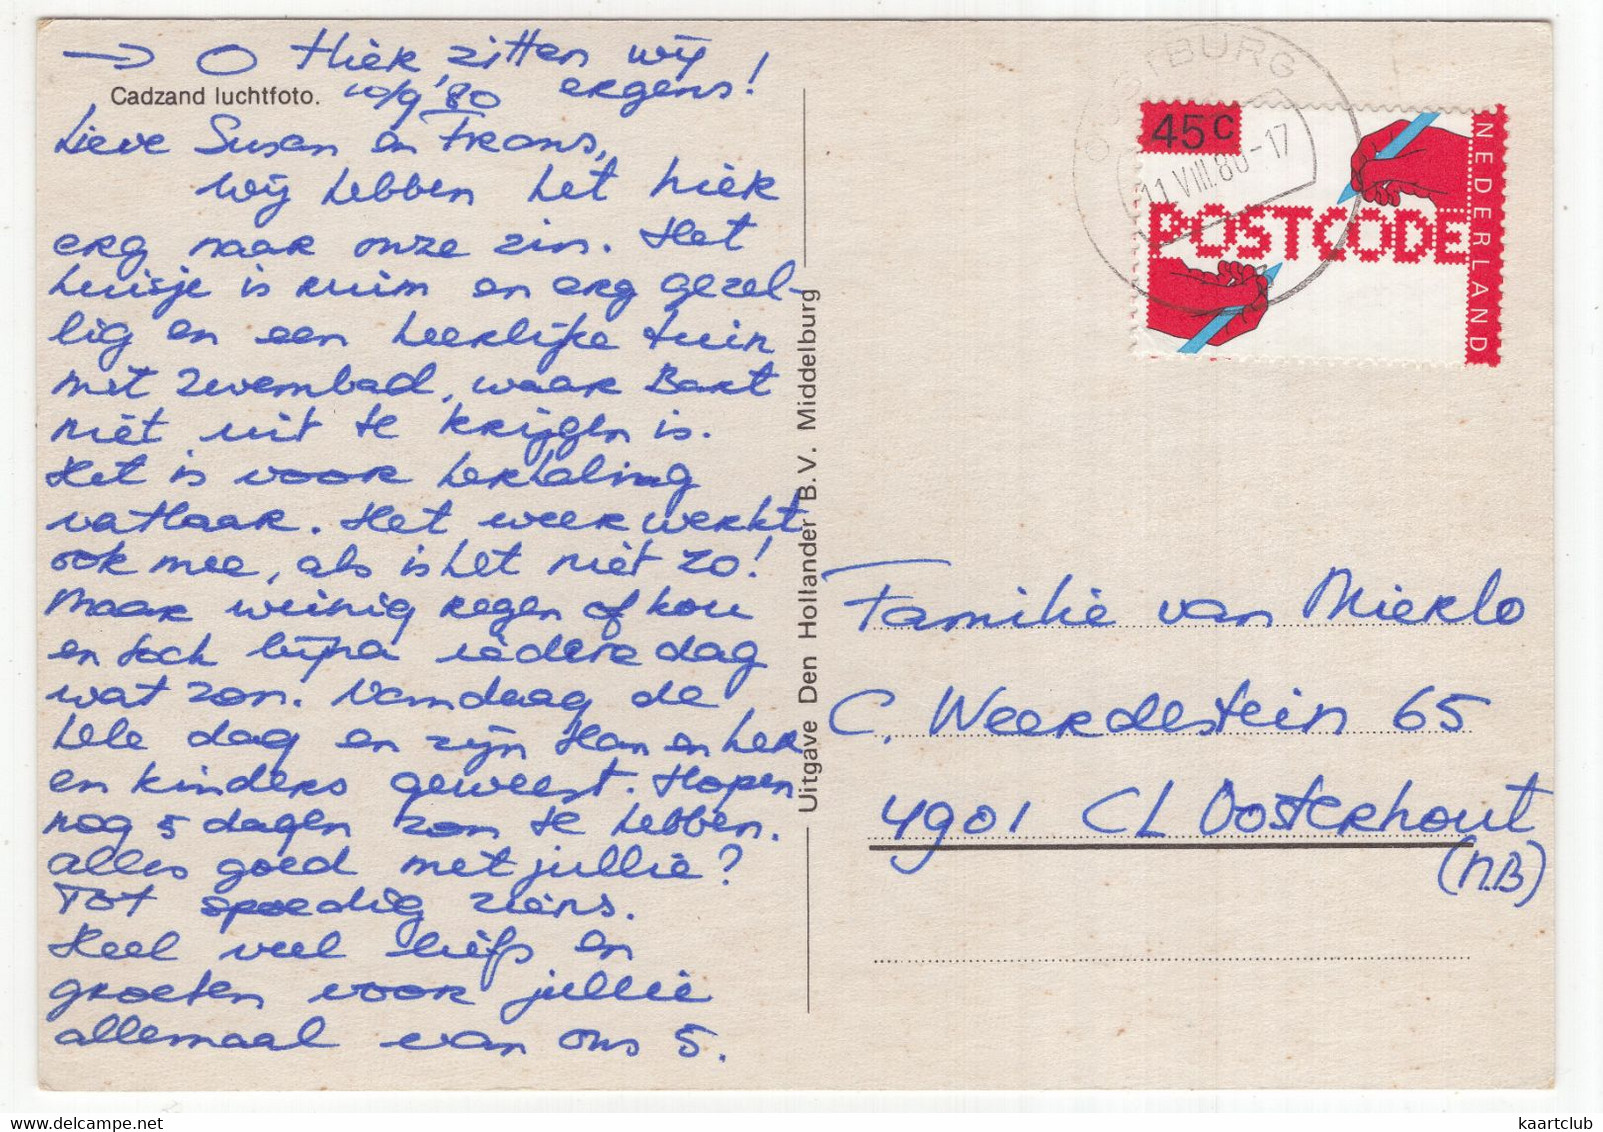 → O Hier zitten wij
ergens!
Cadzand luchtfoto. 10/9 '80
Lieve Susan en Frans,
wij hebben het hier
erg naar onze zin. Het
huisje is ruim en erg gezel-
lig en een heerlijke tuin
met zwembad, waar Bart
niet uit te krijgen is.
Het is voor herhaling
vatbaar. Het weer werkt
ook mee, als is het niet zo!
Maar weinig regen of kou
en toch bijna iedere dag
wat zon. Vandaag de
hele dag en zijn Han en her
en kinders geweest. Hopen
nog 5 dagen zon te hebben.
alles goed met jullie?
Tot spoedig ziens.
Heel veel liefs en
groeten voor jullie
allemaal van ons 5.
Uitgave Den Hollander B.V. Middelburg
OOSTBURG
11 VIII.80-17
45c
NEDERLAND
POSTCODE
Familie van Mierlo
C. Weerdestein 65
4901 CL Oosterhout
(N.B)
kaartclub